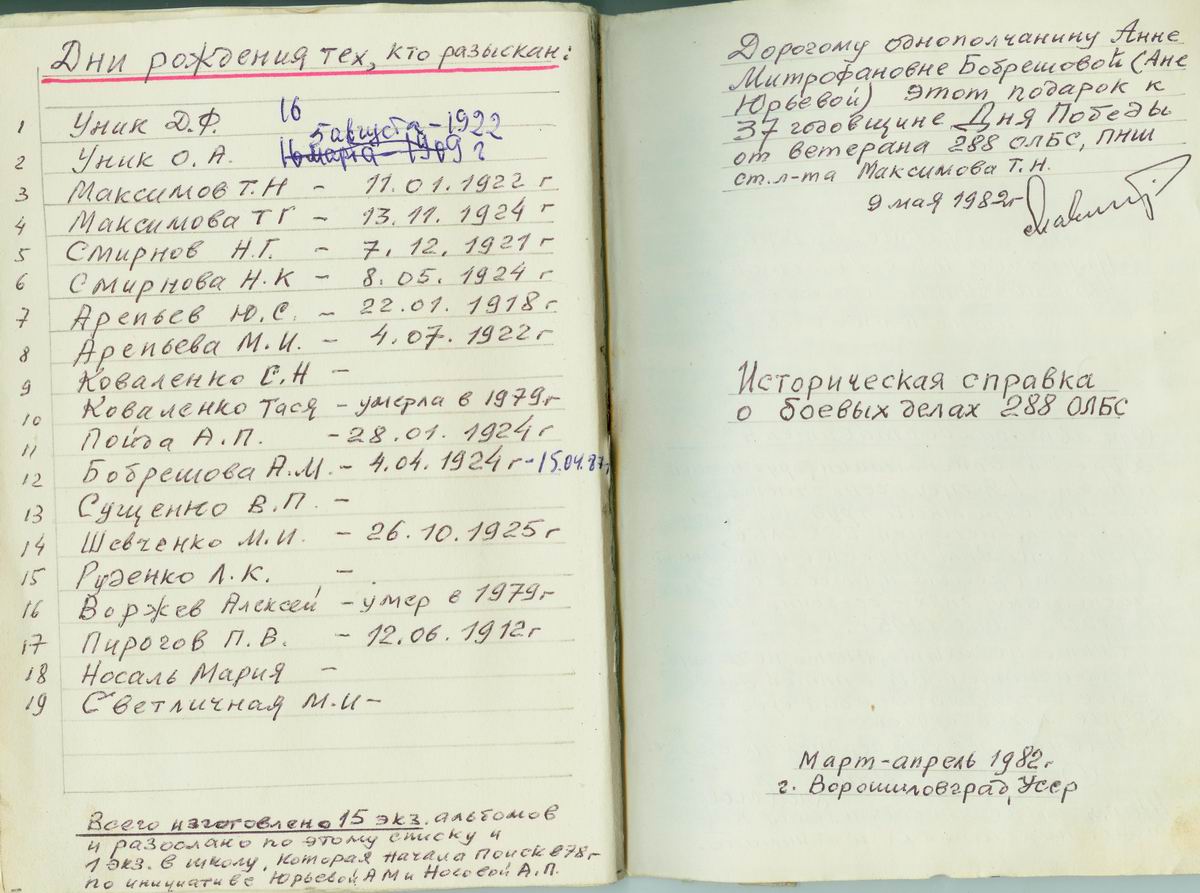 Дни рождения тех, кто разыскан:
16
1 Уник Д.Ф. 5 августа - 1922
2 Уник О.А. 16 марта - 1909 г
3 Максимов Т.Н - 11.01.1922 г
4 Максимова Т Г - 13.11.1924 г
5 Смирнов Н.Г. - 7.12.1921 г
6 Смирнова Н.К - 8.05.1924 г
7 Арепьев Ю.С. - 22.01.1918 г
8 Арепьева М.И. - 4.07.1922 г
9 Коваленко С.Н -
10 Коваленко Тася - умерла в 1979 г
11 Пойда А.П. - 28.01.1924 г
12 Бобрешова А.М. - 4.04.1924 г - 15.04.87 г
13 Сущенко В.П. -
14 Шевченко М.И. - 26.10.1925 г
15 Руденко Л.К. -
16 Воржев Алексей - умер в 1979 г
17 Пирогов П.В. - 12.06.1912 г
18 Носаль Мария -
19 Светличная М.И -
Всего изготовлено 15 экз. альбомов
и разослано по этому списку и
1 экз. в школу, которая начала поиск в 78 г
по инициативе Юрьевой АМ и Носовой А.П.
Дорогому однополчанину Анне
Митрофановне Бобрешовой (Ане
Юрьевой) этот подарок к
37 годовщине Дня Победы
от ветерана 288 ОЛБС, ПНШ
ст. л-та Максимова Т.Н.
9 мая 1982 г
Историческая справка
о боевых делах 288 ОЛБС
Март-апрель 1982 г
г. Ворошиловград, Усср